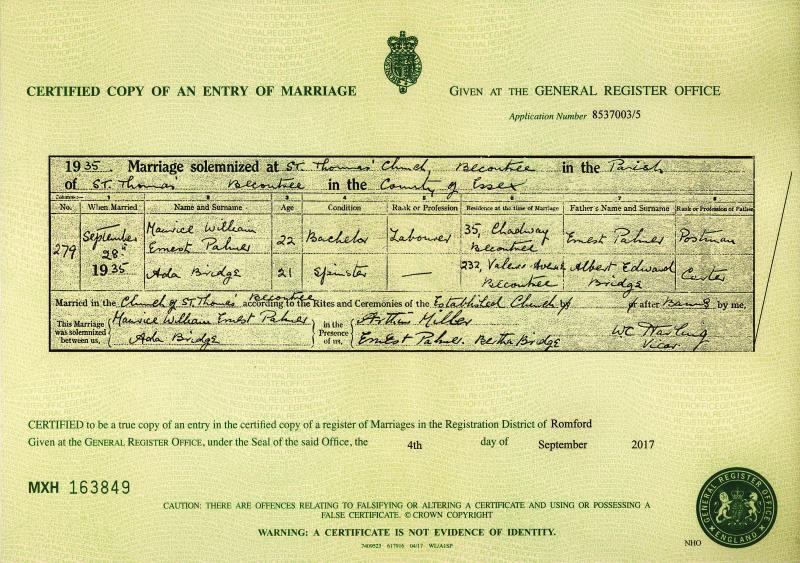 CERTIFIED COPY OF AN ENTRY OF MARRIAGE
GIVEN AT THE GENERAL REGISTER OFFICE
Application Number 8537003/5
1935. Marriage solemnized at St. Thomas' Church, Becontree in the Parish
of St. Thomas' Becontree in the County of Essex
Columns:— 1 2 3 4 5 6 7 8
No. When Married Name and Surname Age Condition Rank or Profession Residence at the time of Marriage Father's Name and Surname Rank or Profession of Father
279 September 28th 1935
Maurice William Ernest Palmer 22 Bachelor Labourer 35, Chadway Becontree Ernest Palmer Postman
Ada Bridge 21 Spinster — 232, Valence Avenue Becontree Albert Edward Bridge Carter
Married in the Church of St. Thomas' Becontree according to the Rites and Ceremonies of the Established Church after Banns by me,
This Marriage was solemnized between us,
Maurice William Ernest Palmer
Ada Bridge
in the Presence of us,
Arthur Miller
Ernest Palmer. Bertha Bridge
Vicar
CERTIFIED to be a true copy of an entry in the certified copy of a register of Marriages in the Registration District of Romford
Given at the GENERAL REGISTER OFFICE, under the Seal of the said Office, the 4th day of September 2017
MXH 163849
CAUTION: THERE ARE OFFENCES RELATING TO FALSIFYING OR ALTERING A CERTIFICATE AND USING OR POSSESSING A
FALSE CERTIFICATE. © CROWN COPYRIGHT
WARNING: A CERTIFICATE IS NOT EVIDENCE OF IDENTITY.
NHO
GENERAL REGISTER OFFICE
ENGLAND